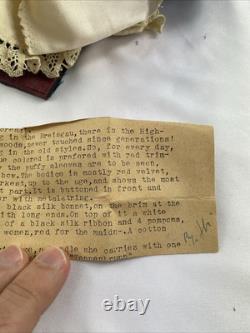 in the Breisgau, there is the High-
woods, never touched since generations!
ng in the old styles. So, for every day,
ue colored is prefered with red trin-
y the puffy sleeves are to be seen,
bow. The bodice is mostly red velvet,
rkest, up to the age, and shows the most
t part. It is buttoned in front and
er with metalstring.
black silk bonnet, on the brim at the
ith long ends. On top of it a white
of a black silk ribbon and 4 pompons,
women, red for the maids-. A cotton
she carries with one